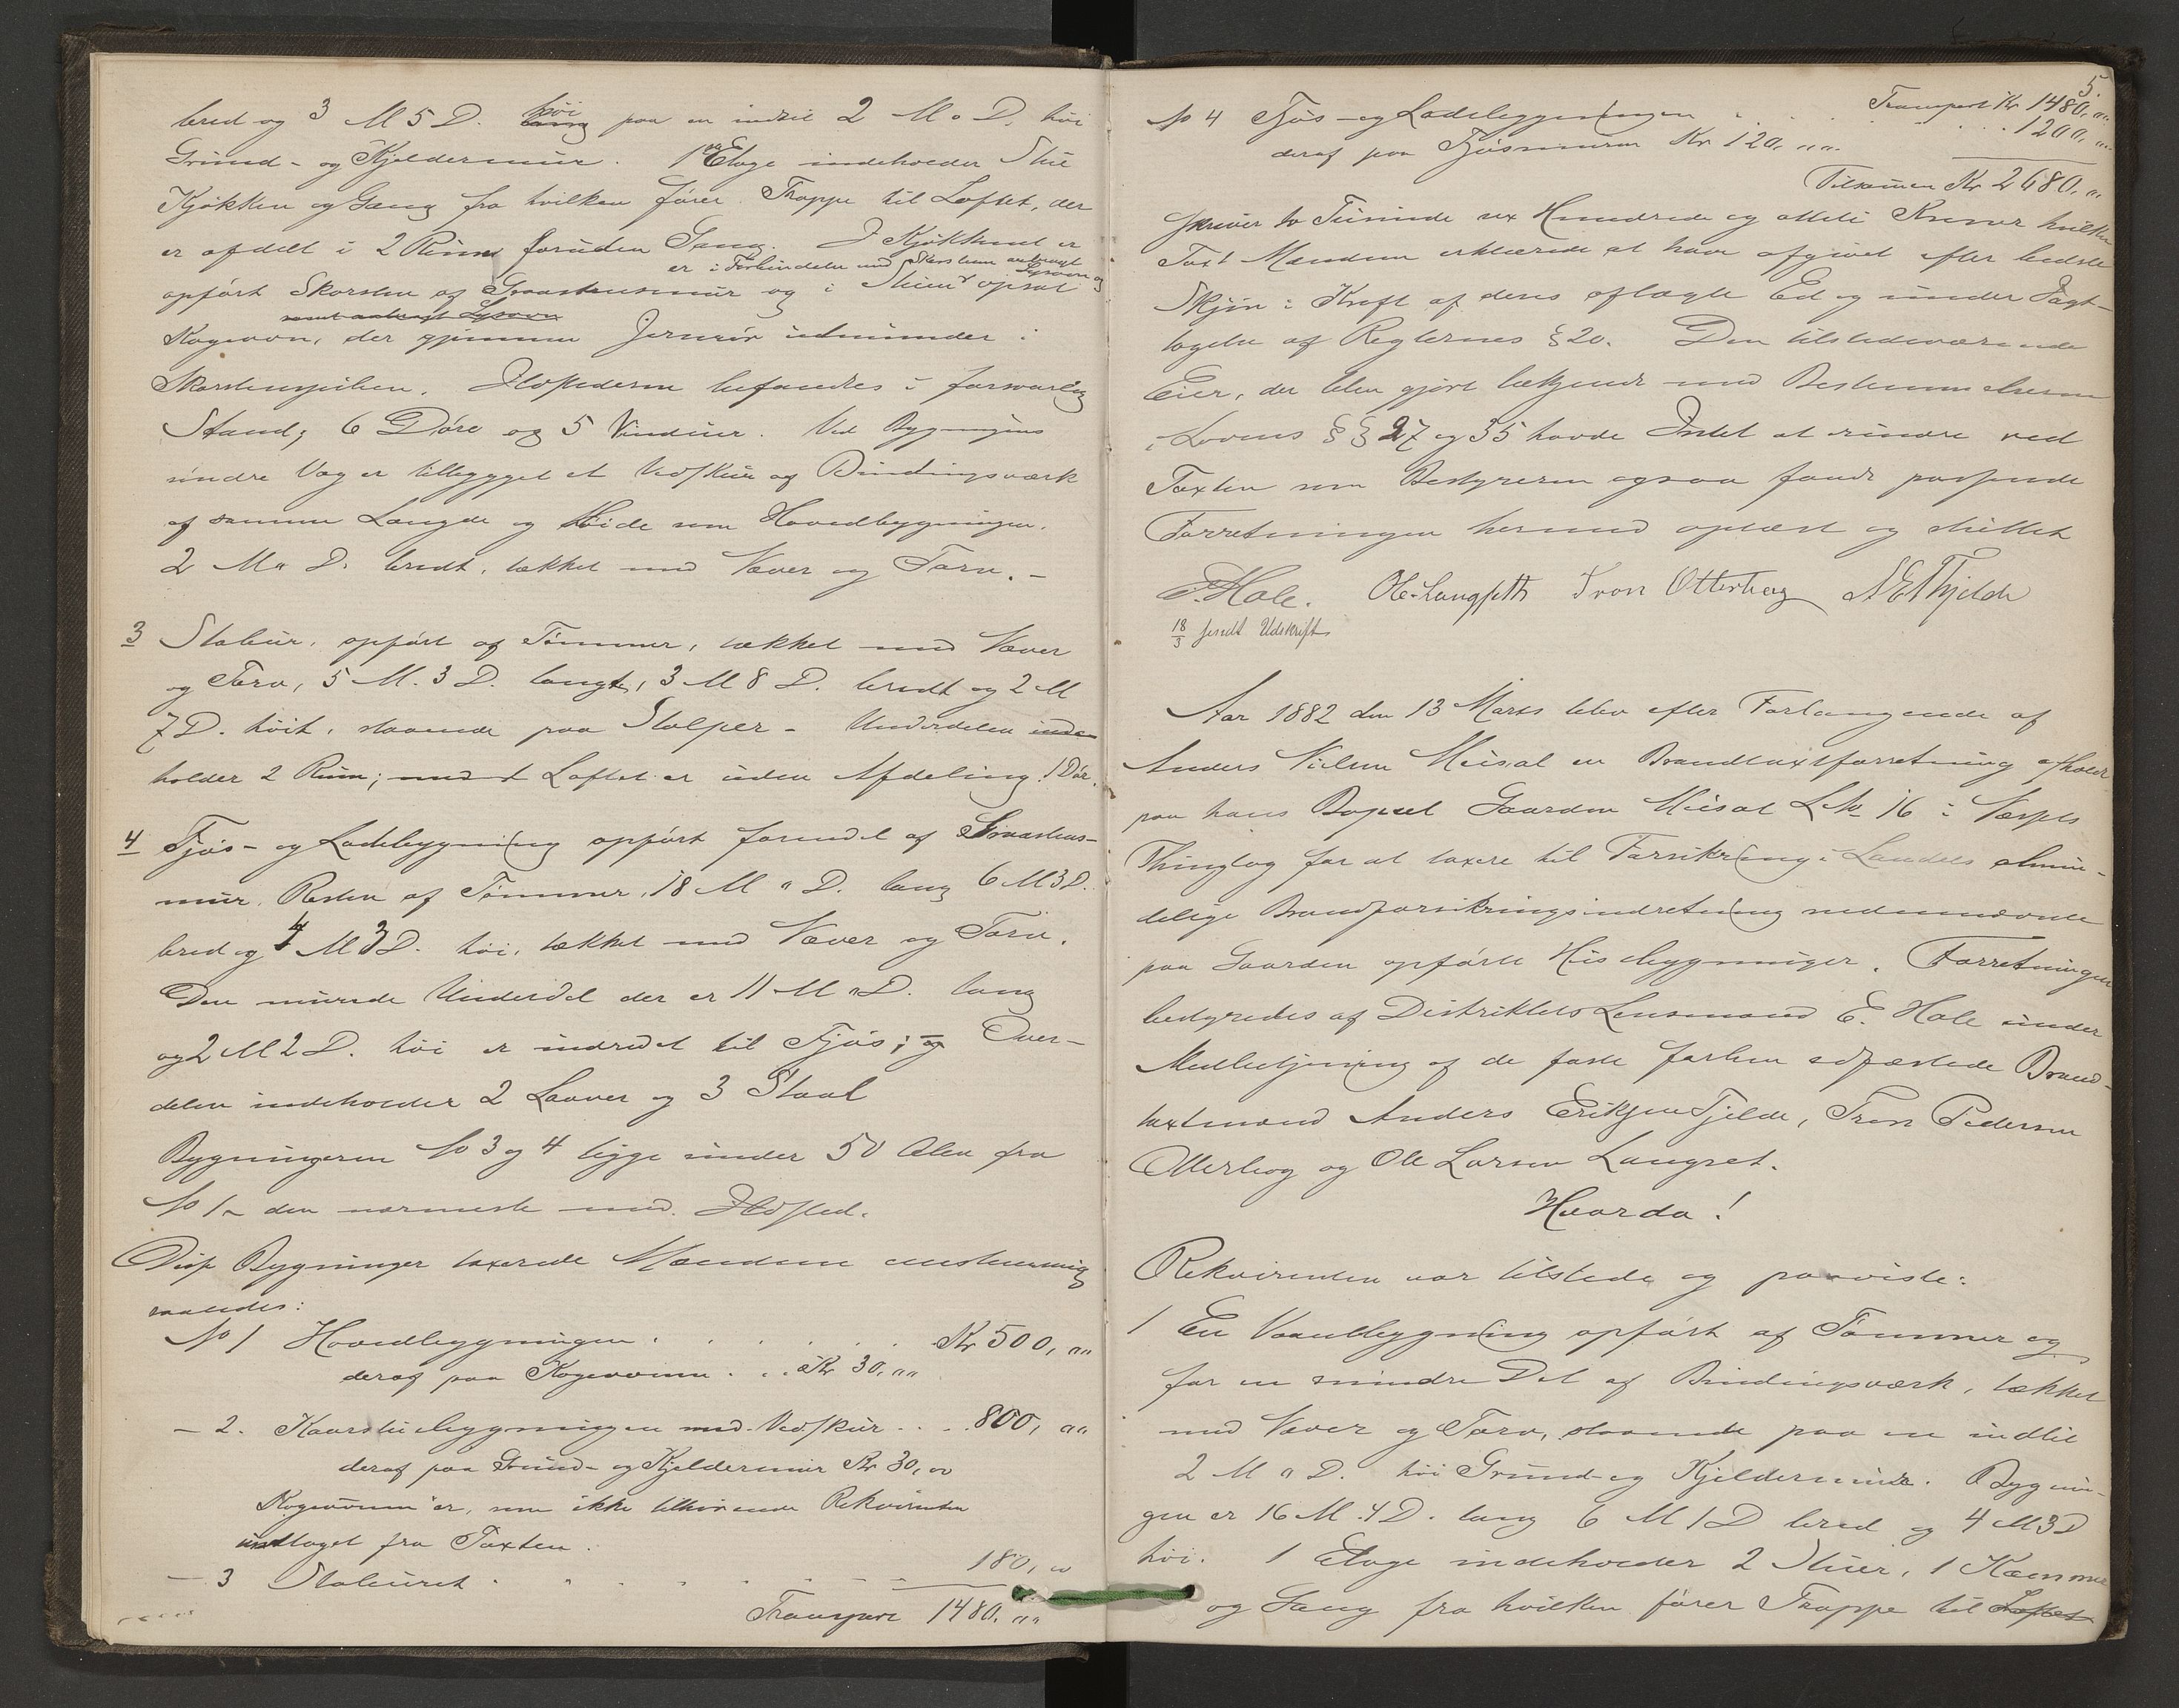 bred og 3 M 5 D. høi paa en indtil 2 M " D. høi
Grund- og Kjeldermur. 1ste Etage indeholder Stue
Kjøkken og Gang fra hvilken fører Trappe til Loftet, der
er afdelt i 2 Rum foruden Gang. I Kjøkkenet er
er i Forbindelse med Skorsten anbragt
opført Skorsten af Graastensmur og i Stuen opsat
Kogeovn, der gjennem Jernrør udmunder i
Skorstenspiben. Ildstederne befandtes i forsvarlig
Stand; 6 Døre og 5 Vinduer. Ved Bygningens
søndre Væg er tilbygget et Vedskur af Bindingsværk
af samme Længde og Høide som Hovedbygningen.
2 M " D. bredt, tækket med Næver og Torv. –
3 Stabur, opført af Tømmer, tækket med Næver
og Torv, 5 M. 3 D. langt, 3 M 8 D. bredt og 2 M
7 D. høit, staaende paa Stolper – Underdelen inde-
holder 2 Rum; Loftet er uden Afdeling. 1 Dør.
4 Fjøs- og Ladebygning opført forendel af Graastens-
mur, Resten af Tømmer, 18 M " D. lang 6 M 3 D.
bred og 4 M 3 D. høi, tækket med Næver og Torv.
Den murede Underdel der er 11 M " D. lang
og 2 M 2 D. høi er indredet til Fjøs; og Over-
delen indeholder 2 Laaver og 3 Staal
Bygningerne No 3 og 4 ligge under 50 Alen fra
No 1 – den nærmeste med Ildsted.
Disse Bygninger taxerede Mændene eenstemmig
saaledes:
No 1 Hovedbygningen . . . . . . Kr 500, ""
deraf paa Kogeovnen . . . Kr 30, ""
– 2. Kaarstuebygningen med Vedskur . . . 800, ""
deraf paa Grund- og Kjeldermur Kr 30, ""
Kogeovnen er, som ikke tilhørende Rekvirenten
undtaget fra Taxten.
– 3 Staburet . . . . . . 180, ""
Transport 1480, ""
5.
Transport Kr 1480, ""
No 4 Fjøs- og Ladebygningen . . . . . 1200, ""
deraf paa Fjøsmuren Kr 120, ""
Tilsammen Kr 2680, ""
skriver to Tusinde sex Hundrede og otteti Kroner hvilken
Taxt Mændene erklærede at have afgivet efter bedste
Skjøn i Kraft af deres aflagte Ed og under Iagt-
tagelse af Reglernes § 20. Den tilstedeværende
Eier, der blev gjort bekjendt med Bestemmelserne
i Lovens §§ 27 og 35 havde Intet at erindre ved
Taxten som Bestyreren ogsaa fandt passende
Forretningen hermed oplæst og sluttet
E. Hole. Ole Langseth Tron Otterbeg A E Thjelde
18/3 sendt Udskrift
Aar 1882 den 13 Marts blev efter Forlangende af
Anders Nilsen Misal en Brandtaxtforretning afholdt
paa hans Bopæl Gaarden Misal L No 16 i
Thinglag for at taxere til Forsikring i Landets almin-
delige Brandforsikringsindretning nedennævnte
paa Gaarden opførte Husebygninger. Forretningen
bestyredes af Distriktets Lensmand E. Hole under
Medbetjening af de faste forhen edfæstede Brand-
taxtmænd Anders Eriksen Tjelde, Tron Pedersen
Otterbeg og Ole Larsen Langset.
Hvorda!
Rekvirenten var tilstede og paaviste:
1 En Vaanebygning opført af Tømmer og
for en mindre Del af Bindingsværk, tækket
med Næver og Torv, staaende paa en indtil
2 M " D. høi Grund- og Kjeldermur. Bygnin-
gen er 16 M. 4 D. lang 6 M 1 D bred og 4 M 3 D
høi. 1 Etage indeholder 2 Stuer, 1 Kammer
og Gang fra hvilken fører Trappe til Loftet